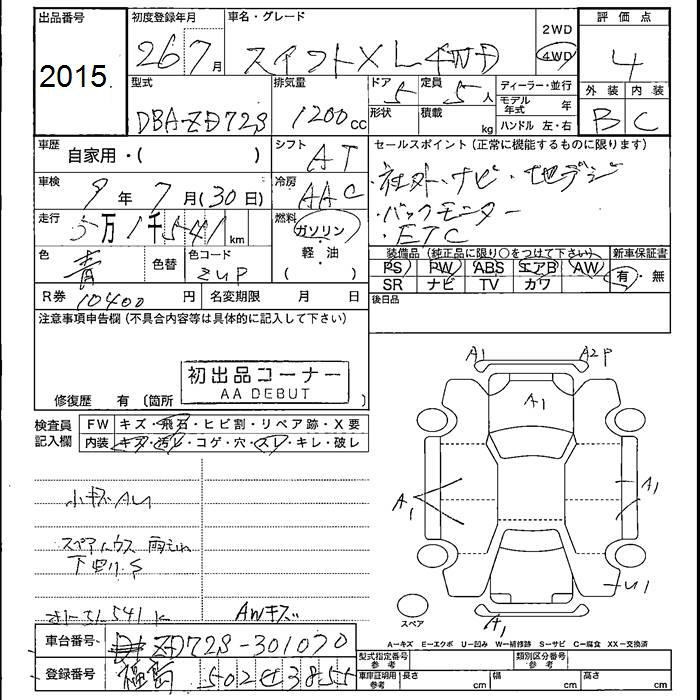 出品番号 初度登録年月 車名・グレード 2WD 評価点
2015. 26 7月 スイフトXL4WD 4WD 4
型式 排気量 ドア 定員 ディーラー・並行 外装 内装
DBA-ZD72S 1200cc 5 5人 モデル年式 年 B C
形状 積載 kg ハンドル 左・右
車歴 自家用・( ) シフト AT セールスポイント(正常に機能するものに限ります)
車検 9年7月(30日) 冷房 AAC ・社外・ナビ・地デジ
走行 5万1千541km 燃料 ガソリン ・軽・油 ( ) ・バックモニター
・ETC
色 青 色替 色コード ZUP 装備品(純正品に限り○をつけて下さい) 新車保証書
PS PW ABS エアB AW 有・無
SR ナビ TV カワ
R券 10400円 名変期限 月 日 後日品
注意事項申告欄(不具合内容等は具体的に記入して下さい)
初出品コーナー
AA DEBUT
修復歴 有 (箇所 )
A1 A2P
A1
検査員記入欄 FW キズ・飛石・ヒビ割・リペア跡・X要
内装 キズ・汚レ・コゲ・穴・スレ・キレ・破レ
A1 A1
小キズAU
スペアハウス 雨もれ
下廻りS
U1
スペア
A1
51541K AWキズ
A=キズ E=エクボ U=凹み W=補修跡 S=サビ C=腐食 XX=交換済
車台番号 ZD72S-301070 型式指定番号 参考 類別区分番号 参考
登録番号 福島 502 せ 3855 車庫証明用 参考 長さ cm 幅 cm 高さ cm